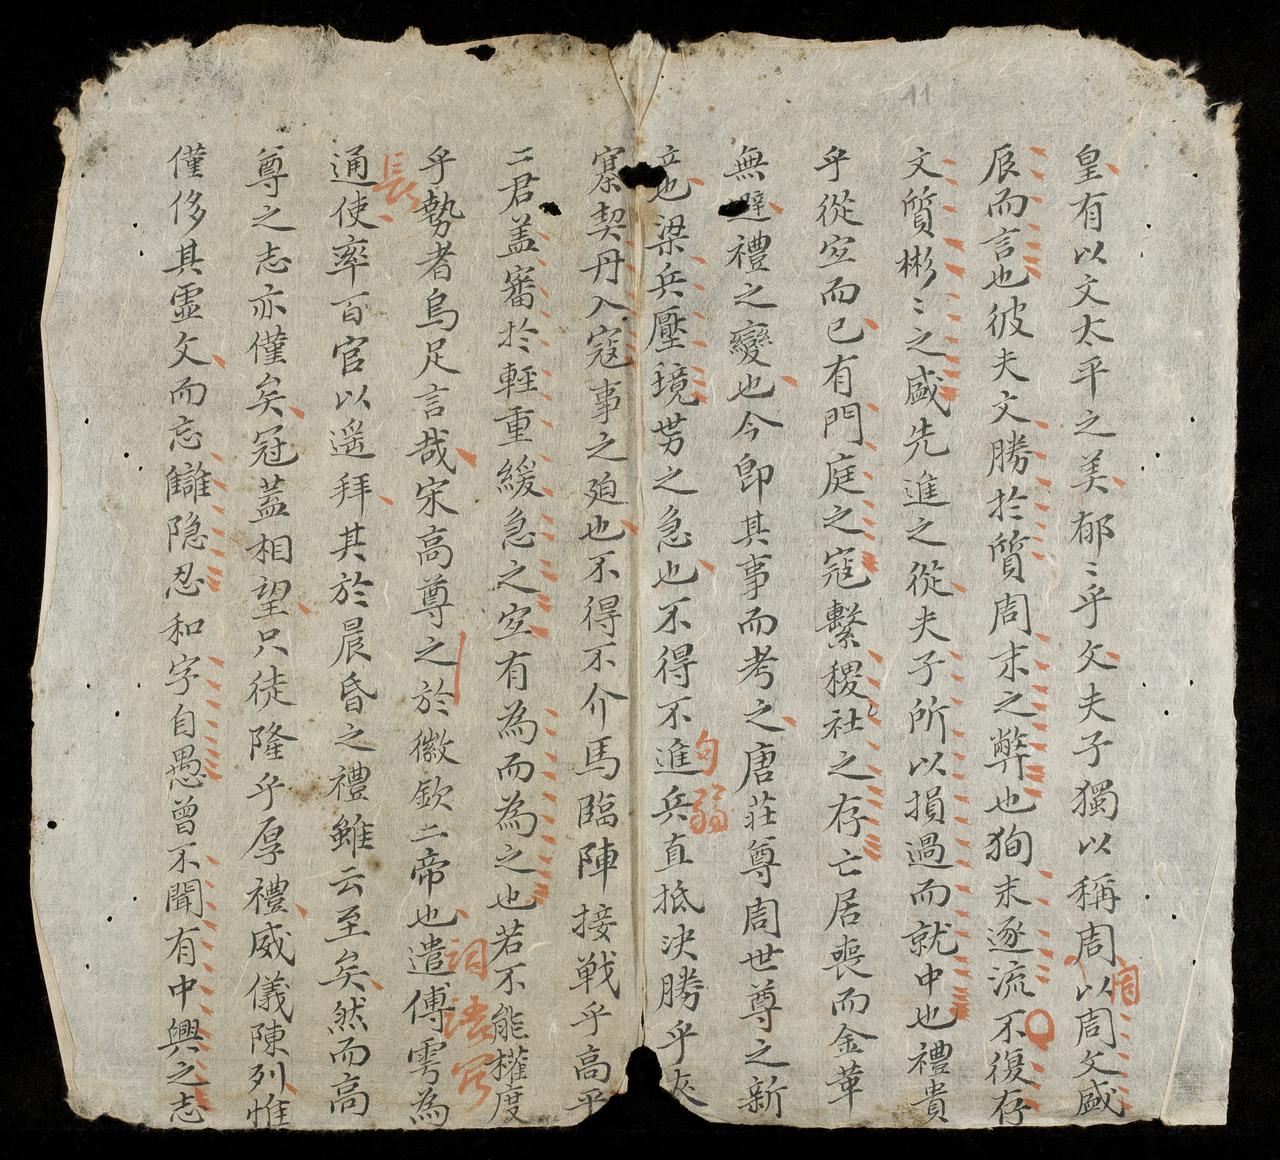 皇有以文太平之美郁〻乎文夫子獨以稱周以周文盛
辰而言也彼夫文勝於質周末之弊也狥末逐流不復存
文質彬〻之盛先進之從夫子所以損過而就中也禮貴
乎從宜而已有門庭之寇繫稷社之存亡居喪而金革
無避禮之變也今即其事而考之唐莊尊周世尊之新
也梁兵壓境勢之急也不得不進兵直抵決勝乎夾
寨契丹入寇事之迫也不得不介馬臨陣接戰乎高平
二君盖審於輕重緩急之宜有為而為之也若不能權度
乎勢者烏足言哉宋高尊之於徽欽二帝也遣傅雱為
通使率百官以遥拜其於晨昏之禮雖云至矣然而高
尊之志亦僅矣冠蓋相望只徒隆乎厚禮威儀陳列惟
僅侈其虛文而忘讎隐忍和字自愚曾不聞有中興之志
句弱
長
詞
11